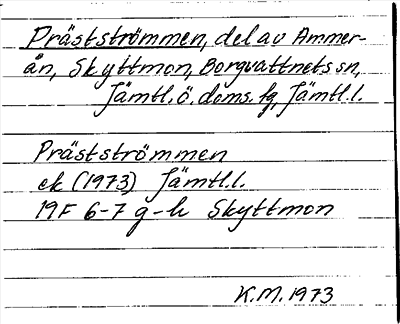 Prästströmmen, del av Ammer-
ån, Skyttmon, Borgvattnets sn,
Jämtl. ö. doms. fg, Jämtl. l.
Prästströmmen
ek (1973) Jämtl. l.
19F 6-7 g-h Skyttmon
K.M. 1973